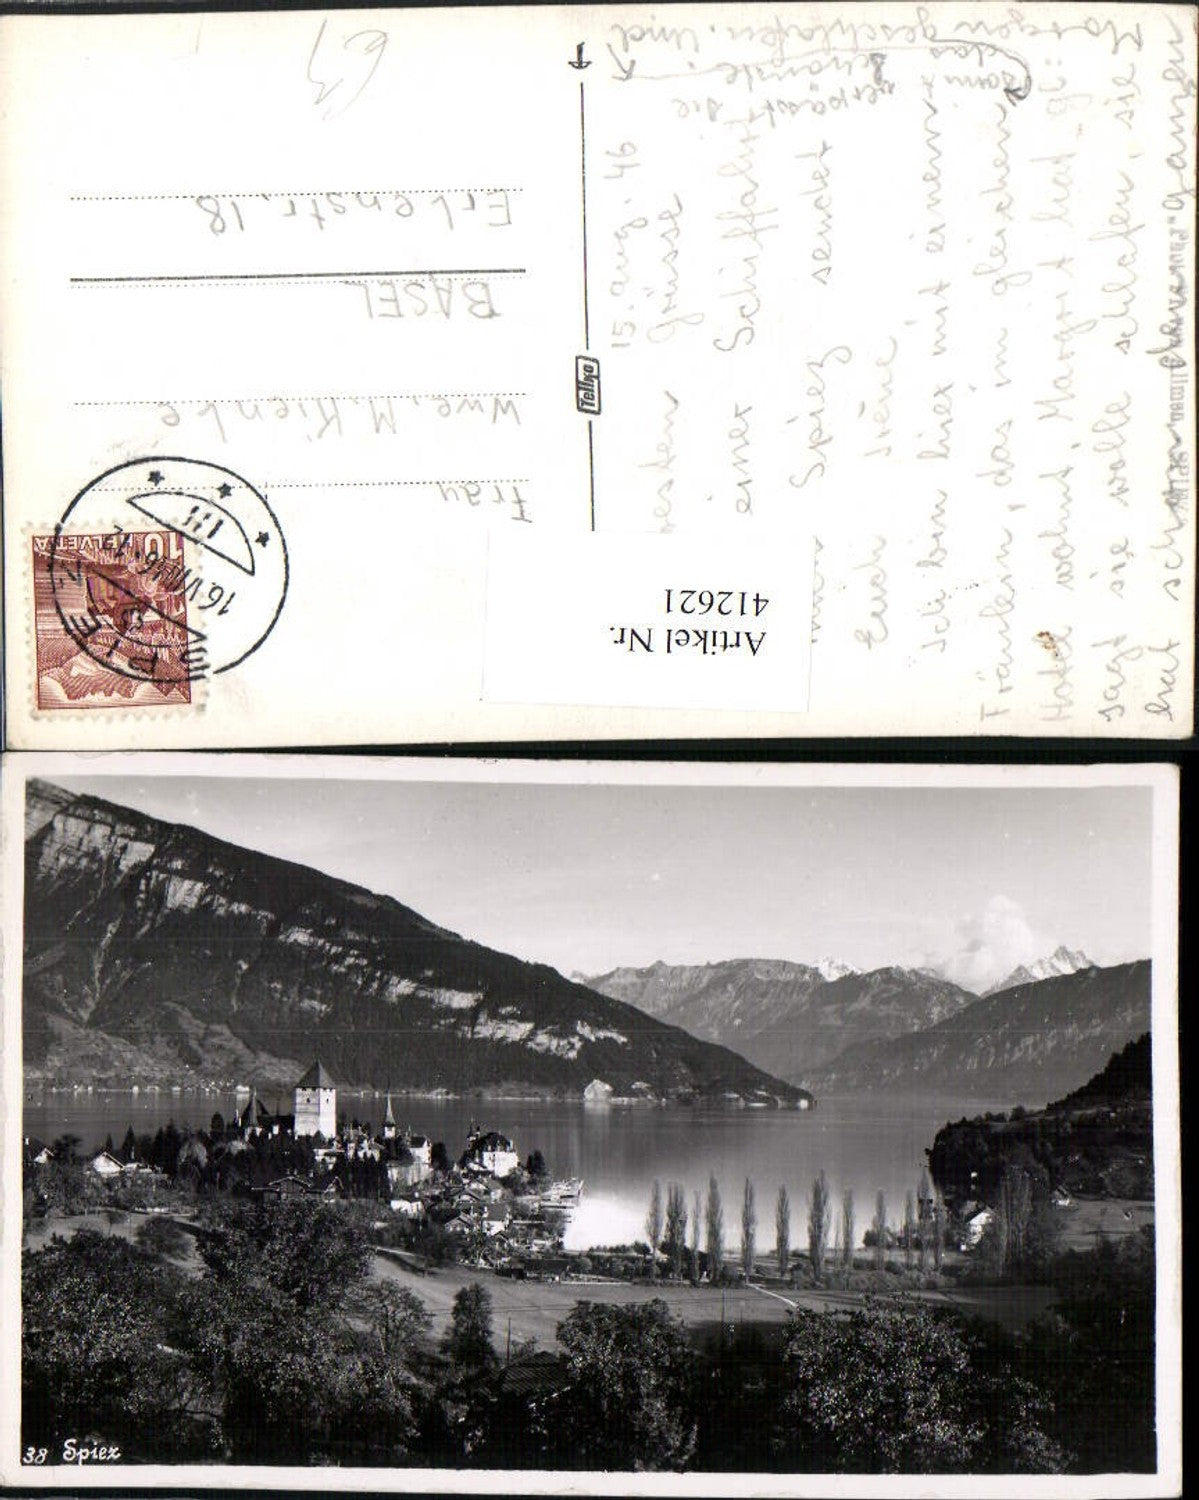 15. Aug. 46
Grüsse
einer Schiffahrt
Spiez sendet
Euch Irène
Ich bin hier mit einem
Fräulein, das im gleichen
Hotel wohnt, Margrit hat
sagt sie wolle schlafen, sie
hat schon den ganzen
Morgen geschlafen. Und
das
verpasst sie
Frau
Wwe. M. Kienke
BASEL
Erlenstr. 18
Tellko
Artikel Nr.
412621
HELVETIA
10
SPIEZ
16.VIII.46-12
38 Spiez